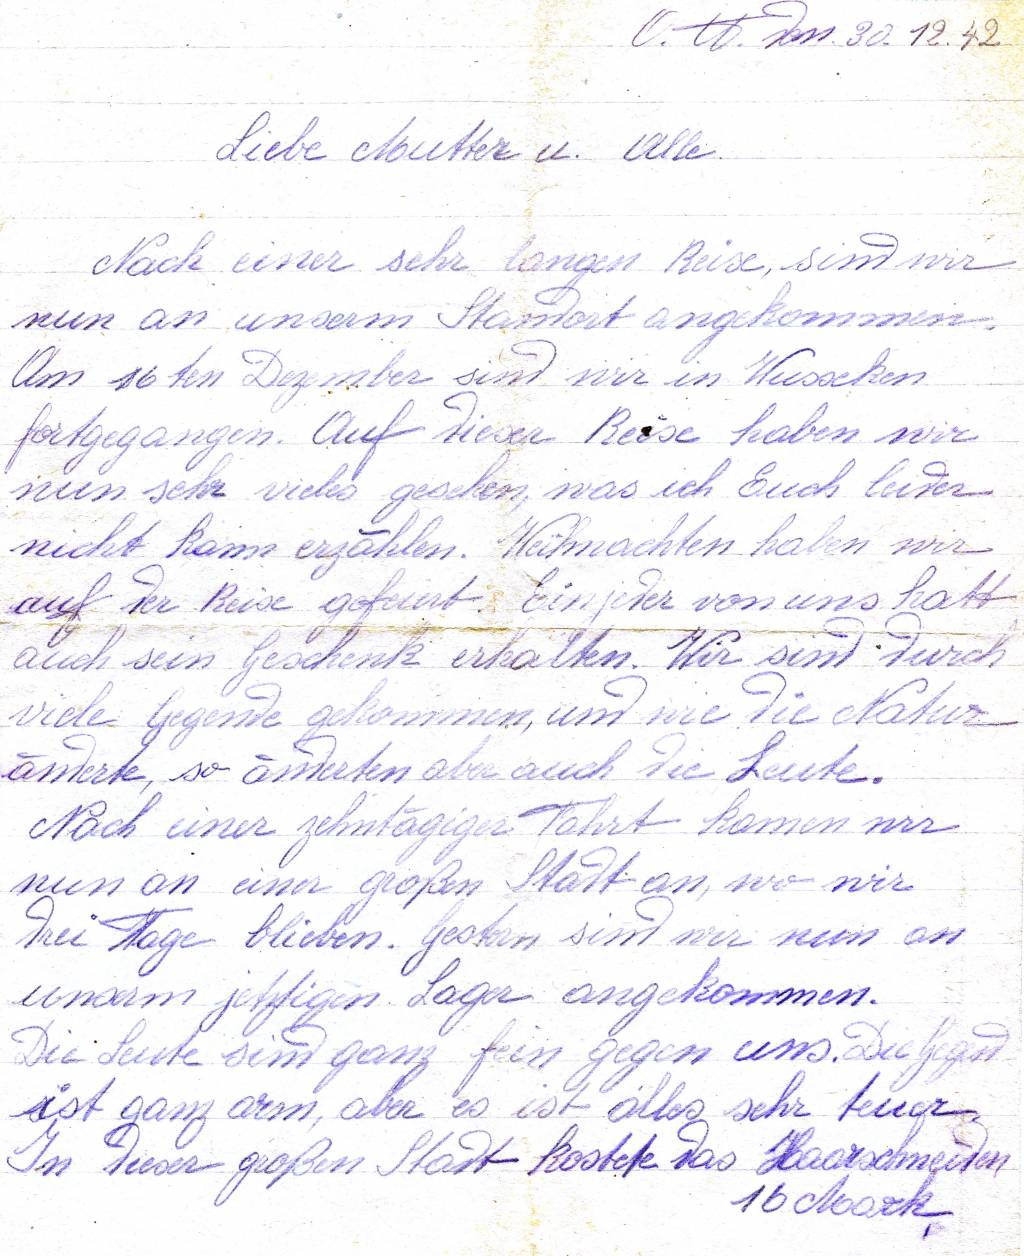 O. U. den. 30. 12. 42
Liebe Mutter u. Alle.
Nach einer sehr langen Reise, sind wir
nun an unserm Standort angekommen.
Am 16 ten Dezember sind wir in Wusseken
fortgegangen. Auf dieser Reise haben wir
nun sehr vieles gesehen, was ich Euch leider
nicht kann erzählen. Weihnachten haben wir
auf der Reise gefeiert. Ein jeder von uns hatt
auch sein Geschenk erhalten. Wir sind durch
viele Gegende gekommen, und wie die Natur
änderte, so änderten aber auch die Leute.
Nach einer zehntägiger Fahrt kamen wir
nun an einer großen Stadt an, wo wir
drei Tage blieben. Gestern sind wir nun an
unserm jetztigen Lager angekommen.
Die Leute sind ganz fein gegen uns. Die Gegend
ist ganz arm, aber es ist alles sehr teuer.
In dieser großen Stadt kostete das Haarschneiden
16 Mark.